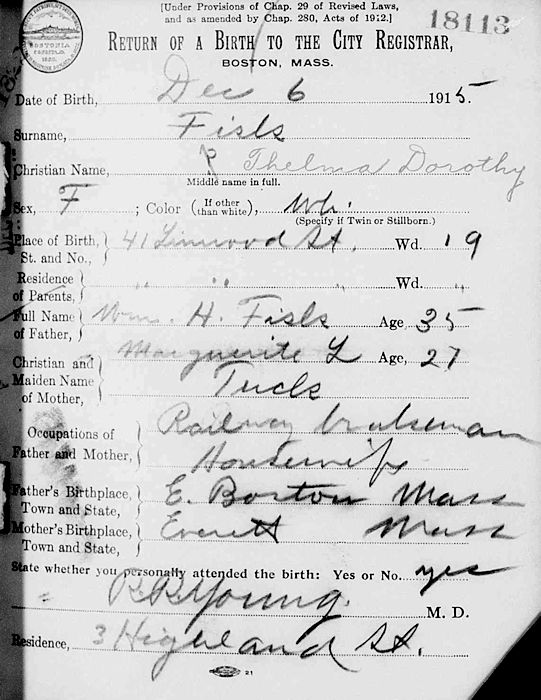 [Under Provisions of Chap. 29 of Revised Laws,
and as amended by Chap. 280, Acts of 1912.]
18113
RETURN OF A BIRTH TO THE CITY REGISTRAR,
BOSTON, MASS.
Date of Birth, Dec 6 1915.
Surname, Fisk
Christian Name, Thelma Dorothy
Middle name in full.
Sex, F ; Color (If other than white), Wh.
(Specify if Twin or Stillborn.)
Place of Birth, St. and No., 41 Linwood St. Wd. 19
Residence of Parents, " " Wd. "
Full Name of Father, Wm. H. Fisk Age 35
Christian and Maiden Name of Mother, Marguerite L Age, 27
Tuck
Occupations of Father and Mother, Railway brakeman
Housewife
Father's Birthplace, Town and State, E. Boston Mass
Mother's Birthplace, Town and State, Everett Mass
State whether you personally attended the birth: Yes or No. yes
Young. M. D.
Residence, 3 Highland St.
21